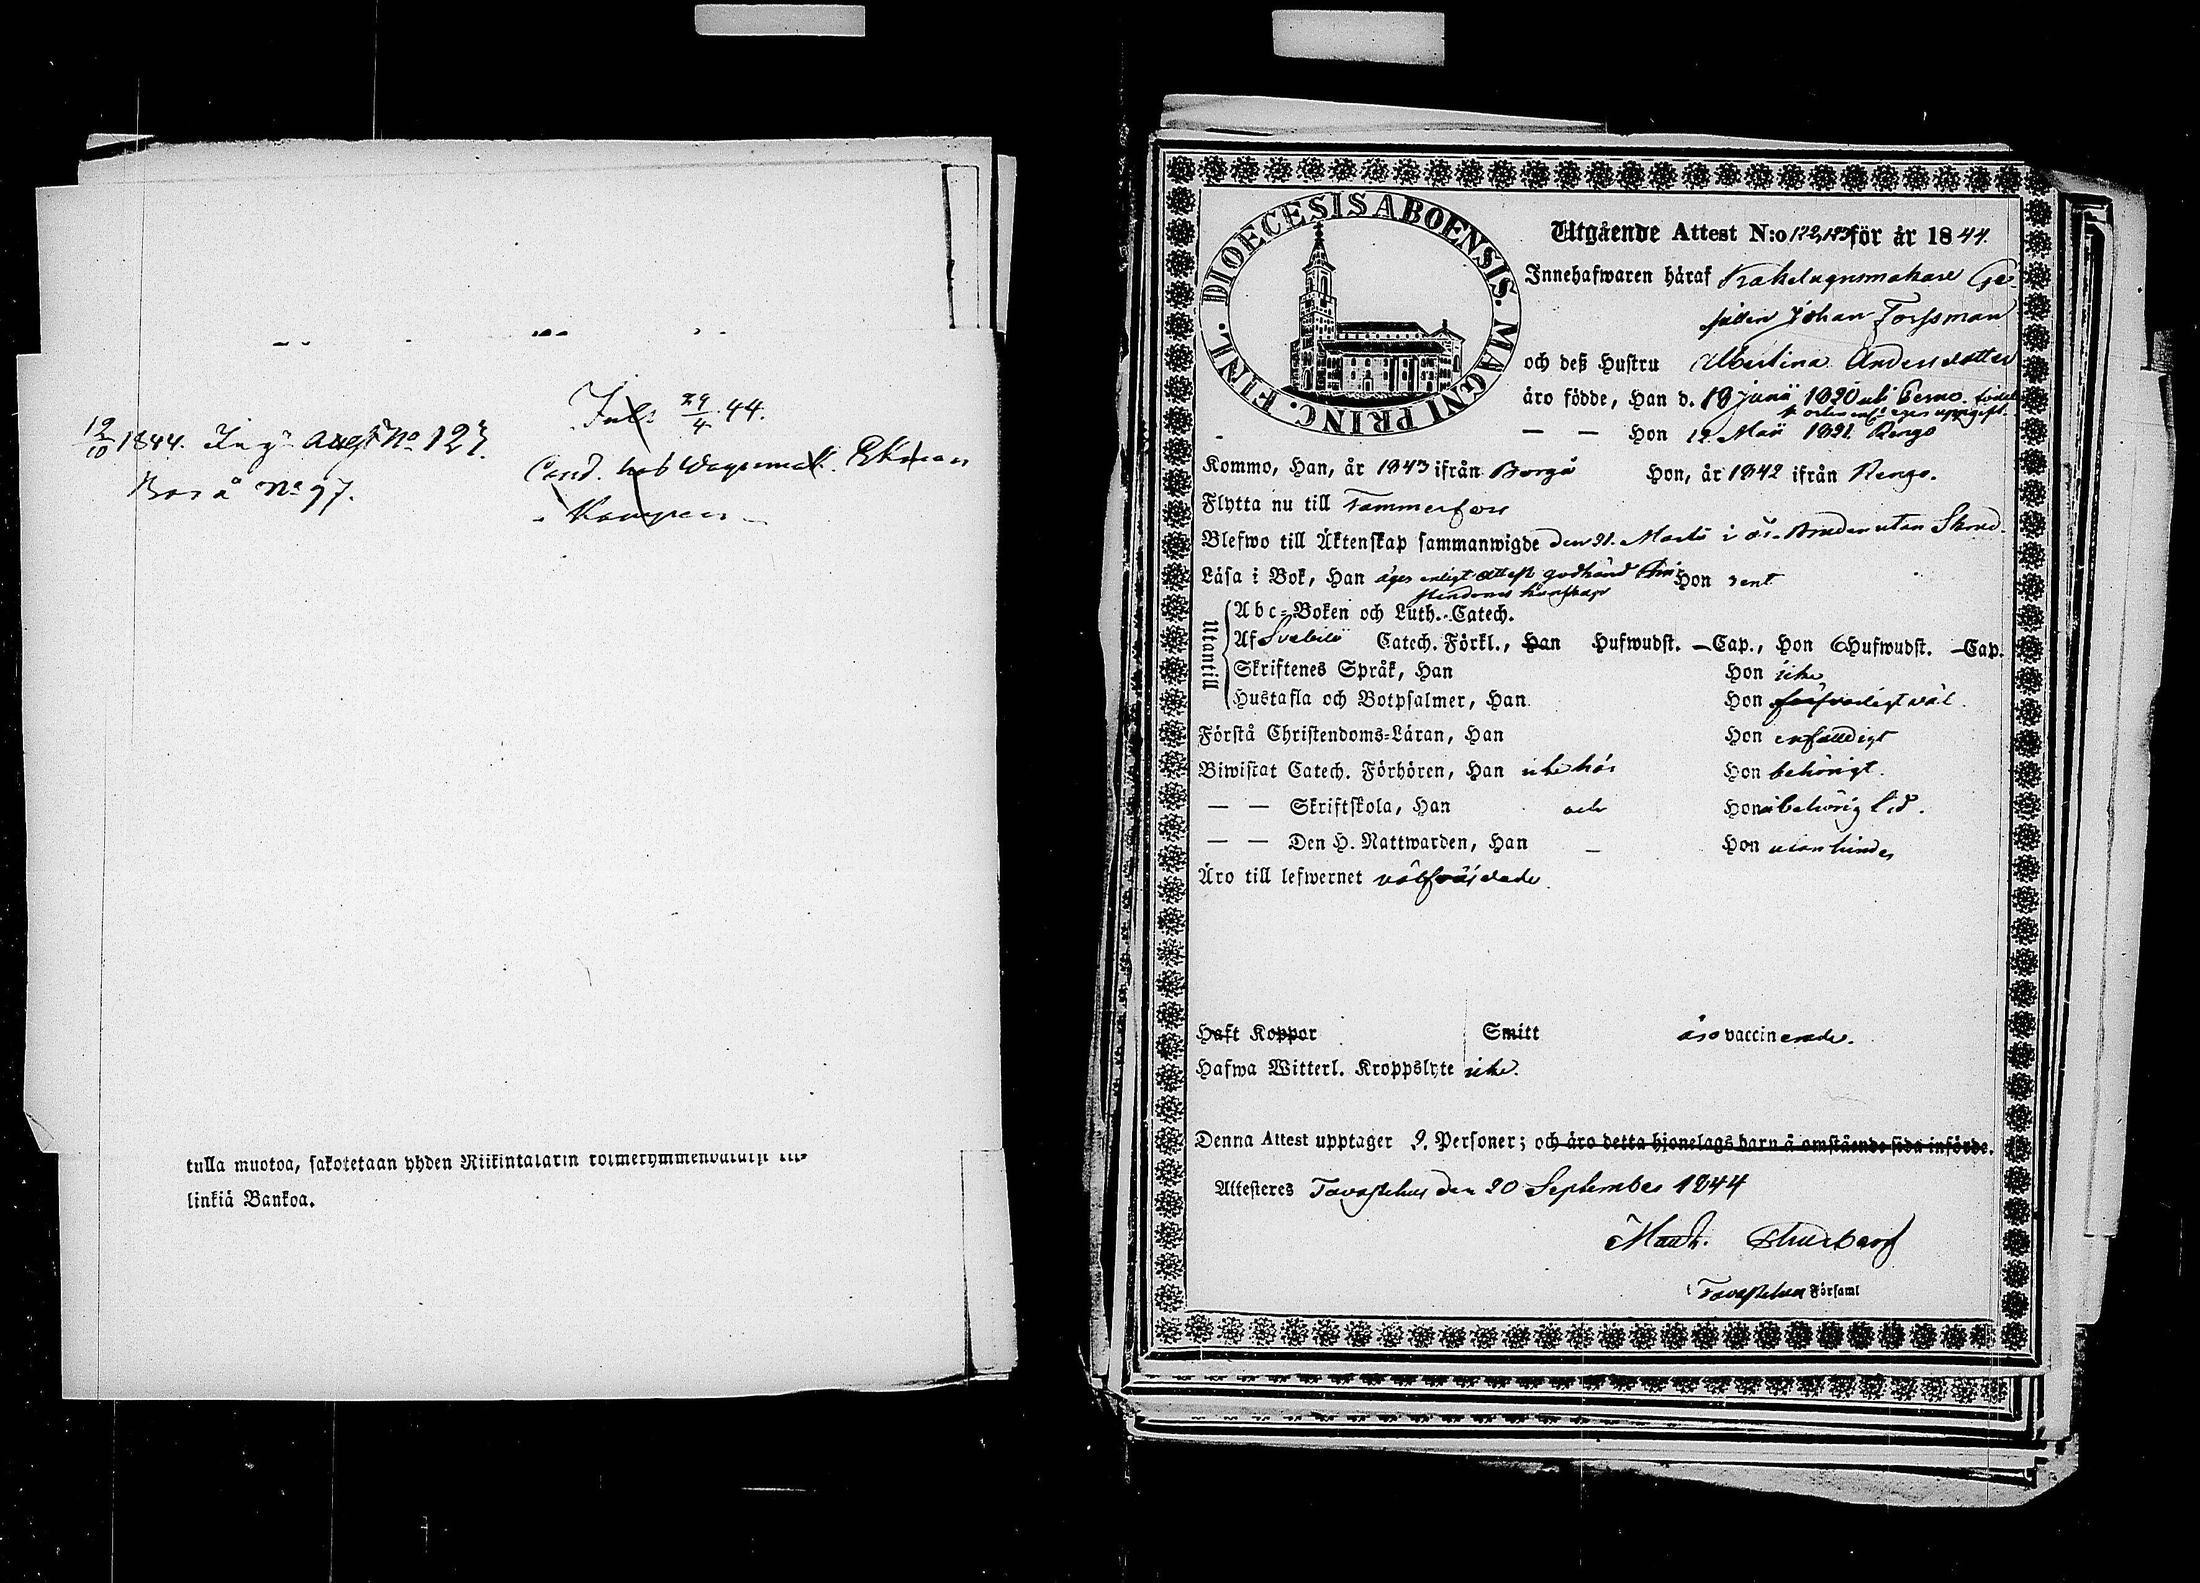 12/10 1844. Ing. Attest No 127.
Bor å No 97.
Jul. 29/4 44.
Cond. hos Wagnmak. Ekman
Kampen
tulla muotoa, sakotetaan yhden Riikintalarin
linkiä Bankoa.
DIOECESIS ABOENSIS. MAGNI PRINC. FINL.
Utgående Attest N:o 122,123 för år 1844.
Innehafwaren häraf Kakelugnsmakare Ge-
sällen Johan Forssman
och deß Hustru Albertina Andersdotter
äro födde, Han d. 18 Junii 1820 uti Perno.
enl. eges uppgift.
— — Hon 12 Maii 1821. Rengo
Kommo, Han, år 1843 ifrån Borgå Hon, år 1842 ifrån Rengo.
Flytta nu till Tammerfors
Blefwo till Äktenskap sammanwigde den 31. Martii i år. Bruden utan
Läsa i Bok, Han äger enligt attest godkänd Chri- Hon rent
stendoms kunskap
Utantill
Abc-Boken och Luth. Catech.
Af Svebelii Catech. Förkl., Han Hufwudst. — Cap., Hon 6 Hufwudst. — Cap.
Skriftenes Språk, Han Hon icke
Hustafla och Botpsalmer, Han Hon försvarligt väl.
Förstå Christendoms-Läran, Han Hon enfaldigt
Biwistat Catech. Förhören, Han icke här Hon behörigt.
— — Skriftskola, Han och Hon i behörig tid.
— — Den H. Nattwarden, Han — Hon utan hinder
Äro till lefwernet välfräjdade.
Haft Koppor Smitt äro vaccinerade.
Hafwa Witterl. Kroppslyte icke.
Denna Attest upptager 2. Personer; och äro detta hjonelags barn å omstående sida införde.
Attesteres Tavastehus den 20 September 1844
i Tavastehus Församl